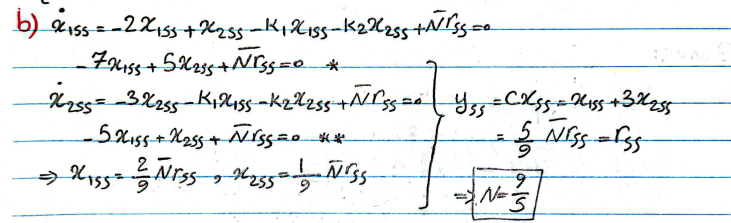 b) ẋ₁ss = -2x₁ss + x₂ss - K₁x₁ss - K₂x₂ss + N̄rss = 0
-7x₁ss + 5x₂ss + N̄rss = 0 *
ẋ₂ss = -3x₂ss - K₁x₁ss - K₂x₂ss + N̄rss = 0
-5x₁ss + x₂ss + N̄rss = 0 **
⇒ x₁ss = 2/9 N̄rss , x₂ss = 1/9 N̄rss
yss = Cxss = x₁ss + 3x₂ss
= 5/9 N̄rss = rss
⇒ N = 9/5